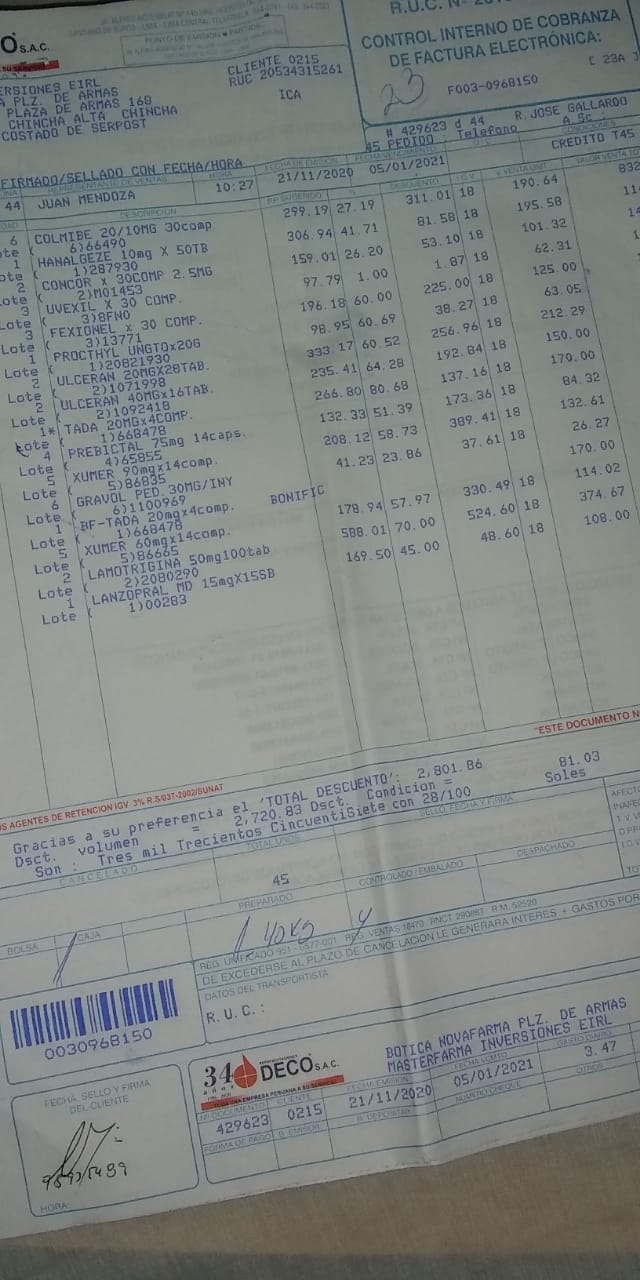 R.U.C. Nº
CONTROL INTERNO DE COBRANZA
DE FACTURA ELECTRÓNICA:
F003-0968150
23
PUNTO DE EMISION
S.A.C.
CLIENTE 0215
RUC 20534315261
ICA
ERSIONES EIRL
A PLZ. DE ARMAS
PLAZA DE ARMAS 168
CHINCHA ALTA CHINCHA
COSTADO DE SERPOST
# 429623 d 44 R. JOSE GALLARDO
45 PEDIDO Telefono
FIRMADO/SELLADO CON FECHA/HORA
REPRESENTANTE DE VENTAS HORA FECHA DE EMISION FECHA VENCIMIENTO CONDICIONES
44 JUAN MENDOZA 10:27 21/11/2020 05/01/2021 CREDITO T45
DESCRIPCION P.P SUGERIDO % DESCUENTO I.G.V. V.VENTA UNIT. VALOR VENTA
6 COLMIBE 20/10MG 30comp 299.19 27.19 311.01 18 190.64 832
Lote ( 6)66490
1 HANALGEZE 10mg X 50TB 306.94 41.71 81.58 18 195.58
Lote ( 1)287930
2 CONCOR x 30COMP 2.5MG 159.01 26.20 53.10 18 101.32
Lote ( 2)M01453
3 UVEXIL X 30 COMP. 97.79 1.00 1.87 18 62.31
Lote ( 3)BFNO
3 FEXIONEL x 30 COMP. 196.18 60.00 225.00 18 125.00
Lote ( 3)13771
1 PROCTHYL UNGTOx20G 98.95 60.69 38.27 18 63.05
Lote ( 1)20821930
2 ULCERAN 20MGX28TAB. 333.17 60.52 256.96 18 212.29
Lote ( 2)1071998
2 ULCERAN 40MGx16TAB. 235.41 64.28 192.84 18 150.00
Lote ( 2)1092418
1* TADA 20MGx4COMP. 266.80 80.68 137.16 18 170.00
Lote ( 1)668478
4 PREBICTAL 75mg 14caps. 132.33 51.39 173.36 18 84.32
Lote ( 4)65855
5 XUMER 90mgx14comp. 208.12 58.73 389.41 18 132.61
Lote ( 5)86835
6 GRAVOL PED.30MG/INY 41.23 23.86 37.61 18 26.27
Lote ( 6)1100969
1 BF-TADA 20mgx4comp. BONIFIC 170.00
Lote ( 1)668478
5 XUMER 60mgx14comp. 178.94 57.97 330.49 18 114.02
Lote ( 5)86665
2 LAMOTRIGINA 50mg100tab 588.01 70.00 524.60 18 374.67
Lote ( 2)2080290
1 LANZOPRAL MD 15mgX15SB 169.50 45.00 48.60 18 108.00
Lote ( 1)00283
"ESTE DOCUMENTO N
OS AGENTES DE RETENCION IGV 3% R.S/037-2002/SUNAT
Gracias a su preferencia el 'TOTAL DESCUENTO': 2,801.86
Dsct. volumen = 2,720.83 Dsct. Condicion = 81.03
Son : Tres mil Trecientos CincuentiSiete con 28/100 Soles
CANCELADO TOTAL UNDS SELLO, FECHA Y FIRMA
45
BOLSA CAJA PREPARADO CONTROLADO / EMBALADO DESPACHADO
REG. UNIFICADO 951 - 0577-001 REG. VENTAS 18470 RNCT. 290887 R.M. 52520
DE EXCEDERSE AL PLAZO DE CANCELACION LE GENERARA INTERES + GASTOS POR
DATOS DEL TRANSPORTISTA
R.U.C.:
0030968150
34 años DECO S.A.C.
BOTICA NOVAFARMA PLZ. DE ARMAS
MASTERFARMA INVERSIONES EIRL
Nº DOCUMENTO CLIENTE FECHA EMISION FECHA VCMTO GASTO DIARIO
429623 0215 21/11/2020 05/01/2021 3.47
FORMA DE PAGO B. EMISOR B. DEPOSITAR NUMERO CHEQUE OTROS
FECHA, SELLO Y FIRMA
DEL CLIENTE
HORA: